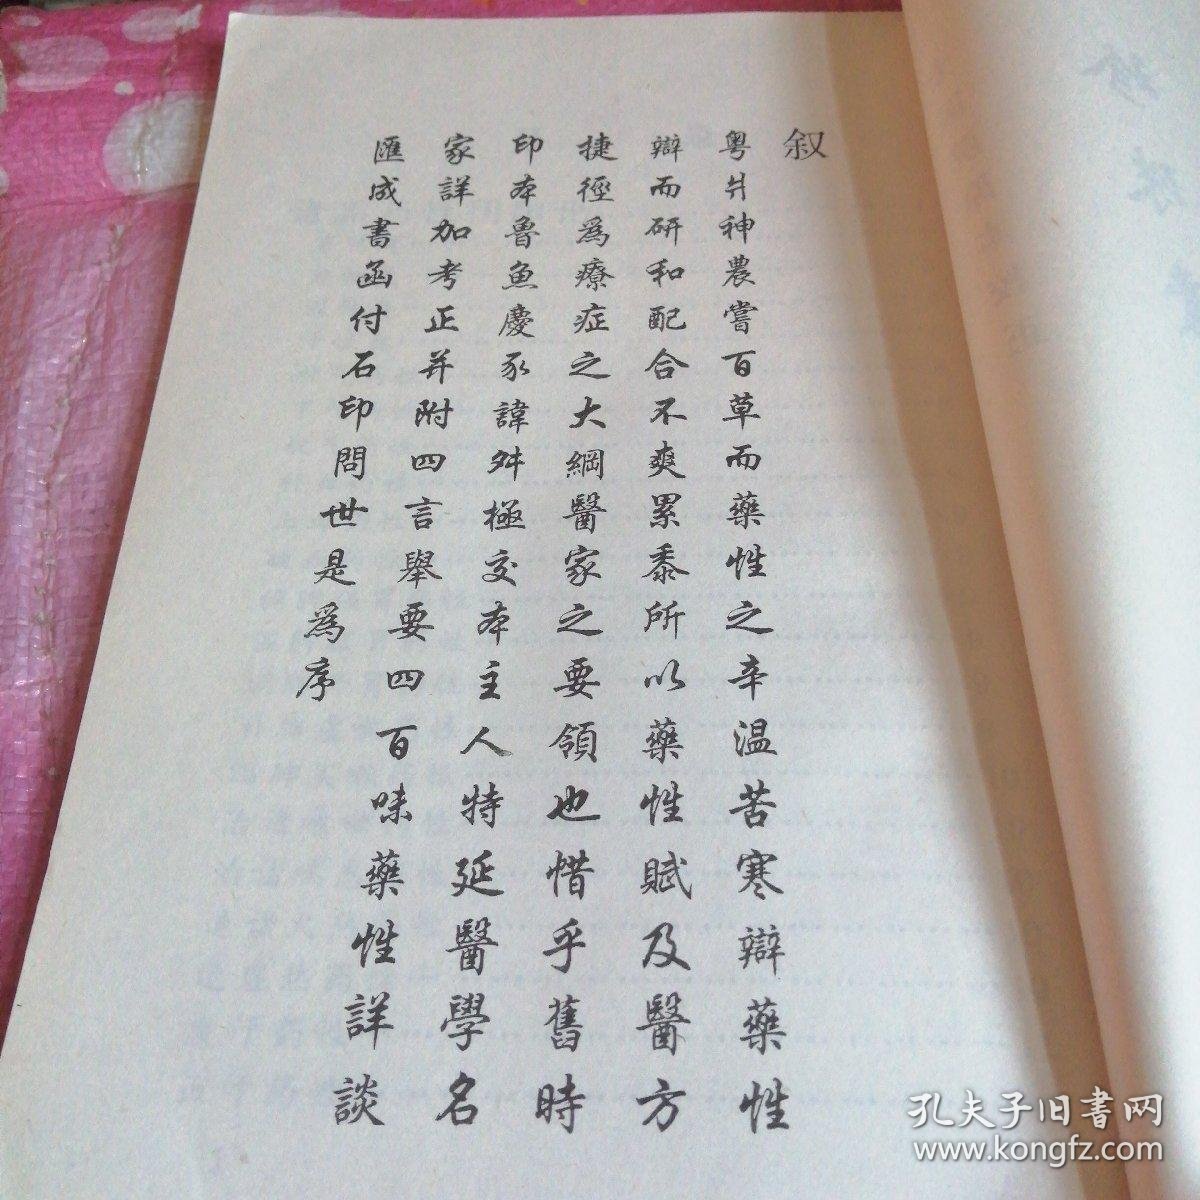 叙
粤廾神農嘗百草而藥性之辛温苦寒辯藥性
辯而研和配合不爽累黍所以藥性賦及醫方
捷徑為療症之大綱醫家之要領也惜乎舊時
印本魯魚慶豕諱舛極交本主人特延醫學名
家詳加考正并附四言舉要四百味藥性詳談
匯成書函付石印問世是為序
孔夫子旧書网
www.kongfz.com